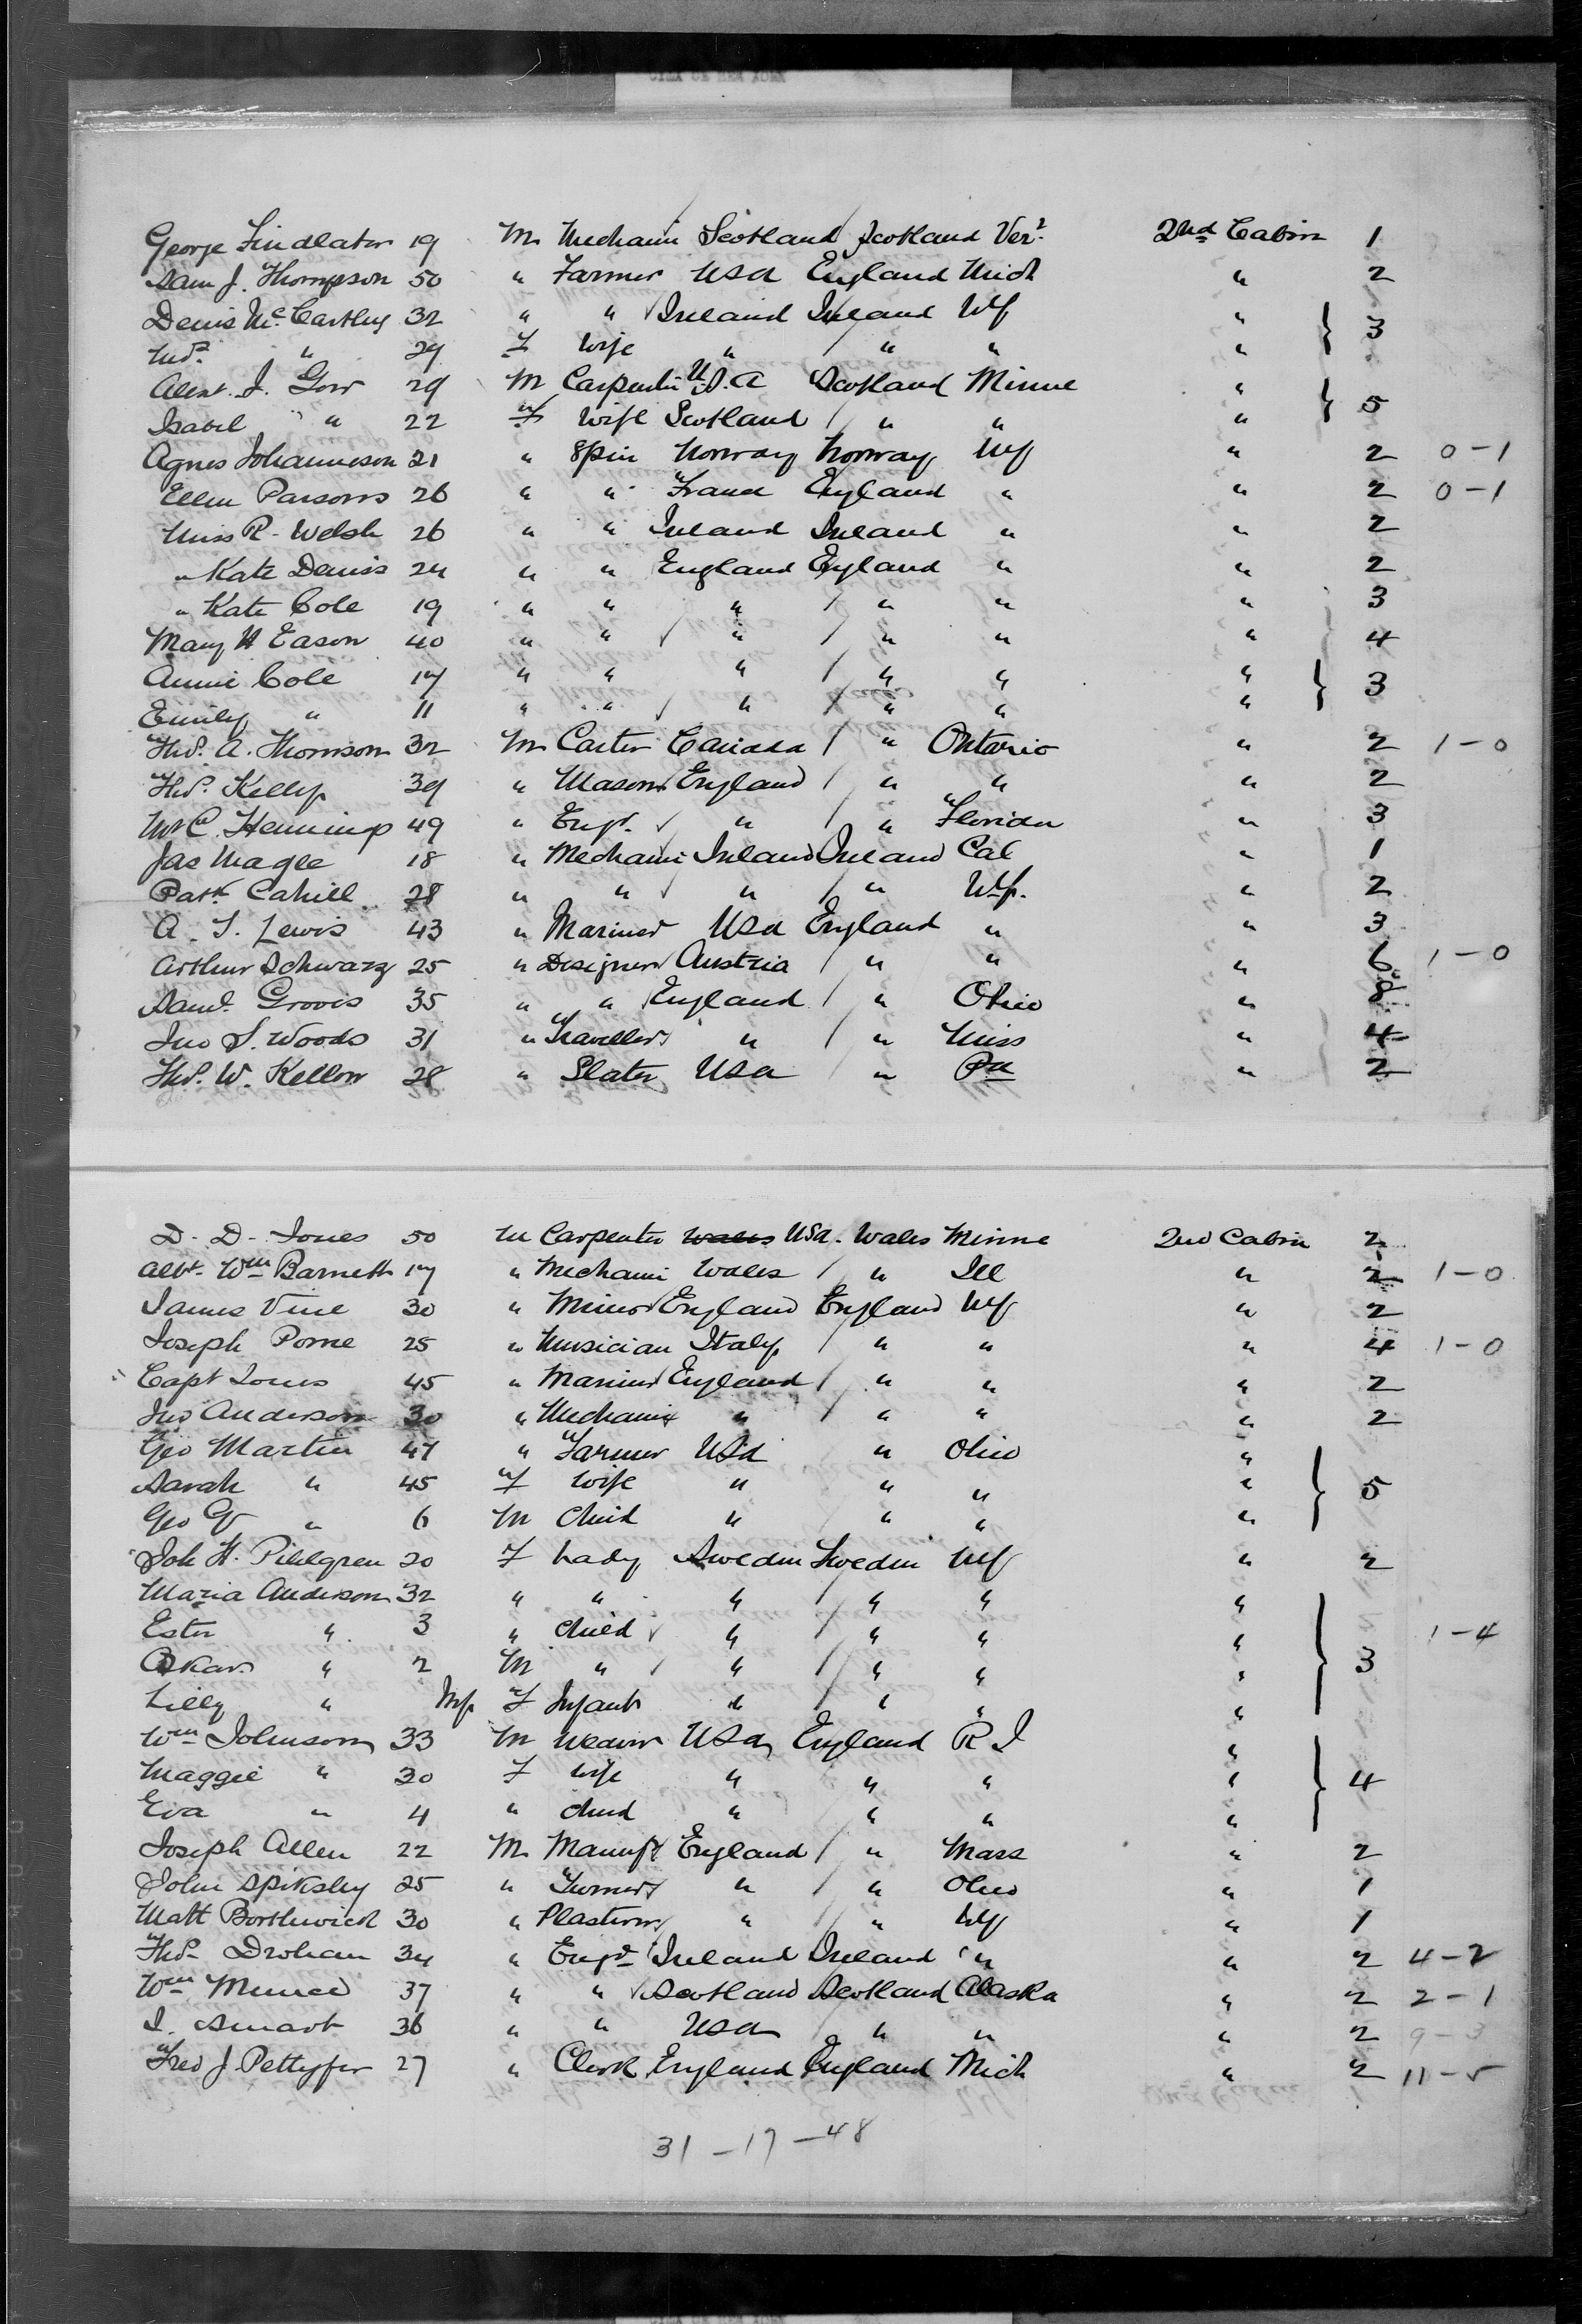 George Findlater 19 M Mechanic Scotland Scotland Ver? 2nd Cabin 1
Sam J. Thompson 50 " Farmer USA England Mich " 2
Denis McCarthy 32 " " Ireland Ireland NY " } 3
Mrs. " 29 F Wife " " " "
Alext. I. Gow 29 M Carpenter U.S.A Scotland Minne " } 5
Isabel " 22 F Wife Scotland " " "
Agnes Johanneson 21 " Spin Norway Norway NY " 2 0-1
Ellen Parsons 26 " " France England " " 2 0-1
Miss R. Welsh 26 " " Ireland Ireland " " 2
" Kate Denis 24 " " England England " " 2
" Kate Cole 19 " " " " " " 3
Mary H Eason 40 " " " " " " 4
Annie Cole 17 " " " " " " } 3
Emily " 11 " " " " " "
Thos. A. Thomson 32 M Carter Canada " Ontario " 2 1-0
Thos. Kelly 39 " Mason England " " " 2
Mr C. Henning 49 " Engr. " " Florida " 3
Jas Magee 18 " Mechanic Ireland Ireland Cal " 1
Patk Cahill 28 " " " " NY. " 2
A. T. Lewis 43 " Mariner USA England " " 3
Arthur Schwarz 25 " Designer Austria " " " 6 1-0
Saml. Groves 35 " " England " Ohio " 8
Jno S. Woods 31 " Traveller " " Miss " 4
Thos. W. Kellow 28 " Slater USA " Pa " 2
D. D. Jones 50 M Carpenter Wales USA. Wales Minne 2nd Cabin 2
Albt. Wm Barnett 17 " Mechanic Wales " Ill " 2 1-0
James Vine 30 " Miner England England NY " 2
Joseph Porne 25 " Musician Italy " " " 4 1-0
Capt Jones 45 " Mariner England " " " 2
Jno Anderson 30 " Mechanic " " " " 2
Geo Martin 47 " Farmer USA " Ohio "
Sarah " 45 F Wife " " " " } 5
Geo " 6 M Child " " " "
Joh H. Pihlgren 20 F Lady Sweden Sweden NY " 2
Maria Anderson 32 " " " " " "
Ester " 3 " Child " " " " 1-4
Oskar " 2 M " " " " " } 3
Lilly " Inf F Infant " " " "
Wm Johnson 33 M Weaver USA England R I "
Maggie " 30 F Wife " " " " } 4
Eva " 4 " Child " " " "
Joseph Allen 22 M Manuf England " Mass " 2
John Spiksley 25 " Turner " " Ohio " 1
Matt Borthwick 30 " Plasterer " " NY " 1
Thos Drohan 34 " Engr Ireland Ireland " " 2 4-2
Wm Munro 37 " " Scotland Scotland Alaska " 2 2-1
J. Smart 36 " " USA " " " 2 9-3
Fred J. Pettyfer 27 " Clerk England England Mich " 2 11-5
31-17-48